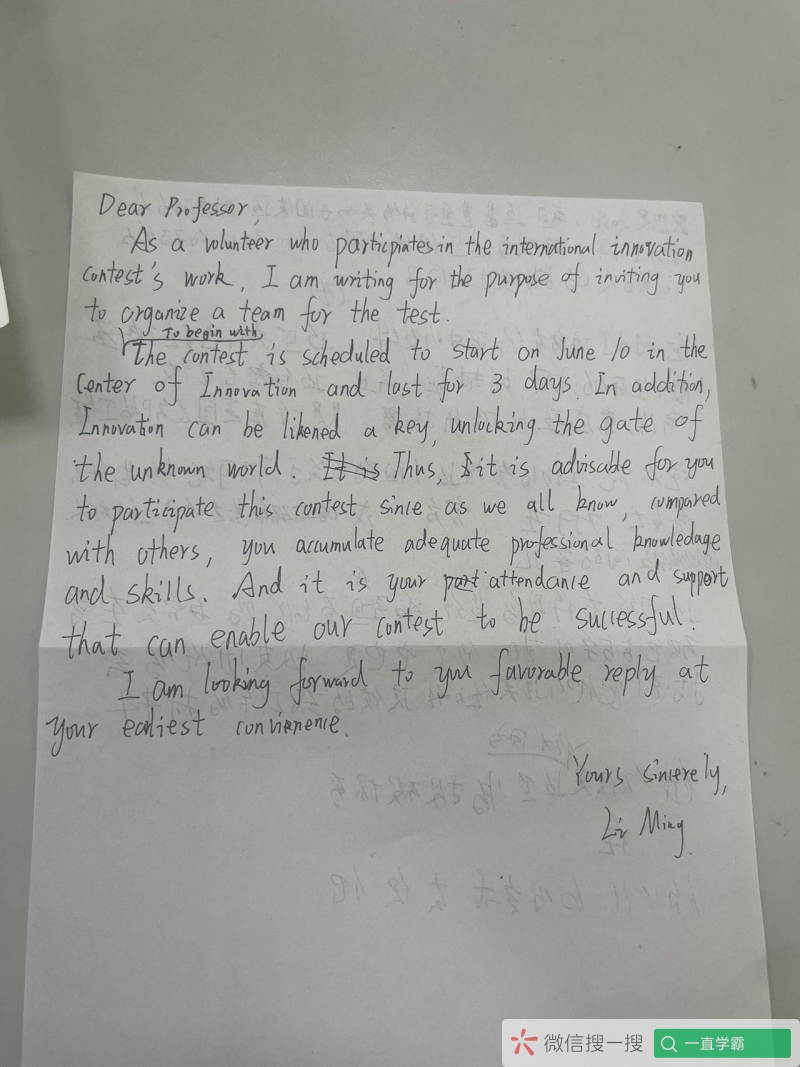 Dear Professor,
As a volunteer who particpiates in the international innovation
contest's work, I am writing for the purpose of inviting you
to organize a team for the test.
To begin with,
The contest is scheduled to start on June 10 in the
Center of Innovation and last for 3 days. In addition,
Innovation can be likened a key, unlocking the gate of
the unknown world. It is Thus, it is advisable for you
to participate this contest since as we all know, compared
with others, you accumulate adequate professional knowledage
and skills. And it is your attendance and support
that can enable our contest to be successful.
I am looking forward to your favorable reply at
your earliest convienence.
Yours sincerely,
Li Ming.
微信搜一搜
一直学霸